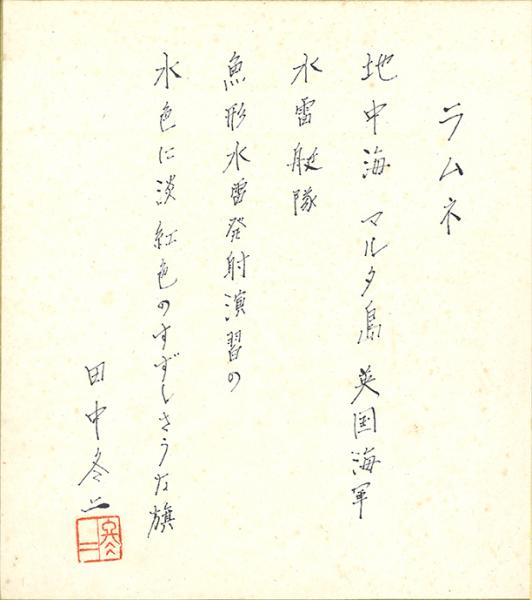 ラムネ
地中海 マルタ島 英国海軍
水雷艇隊
魚形水雷発射演習の
水色に淡紅色のすずしさうな旗
田中冬二
冬二